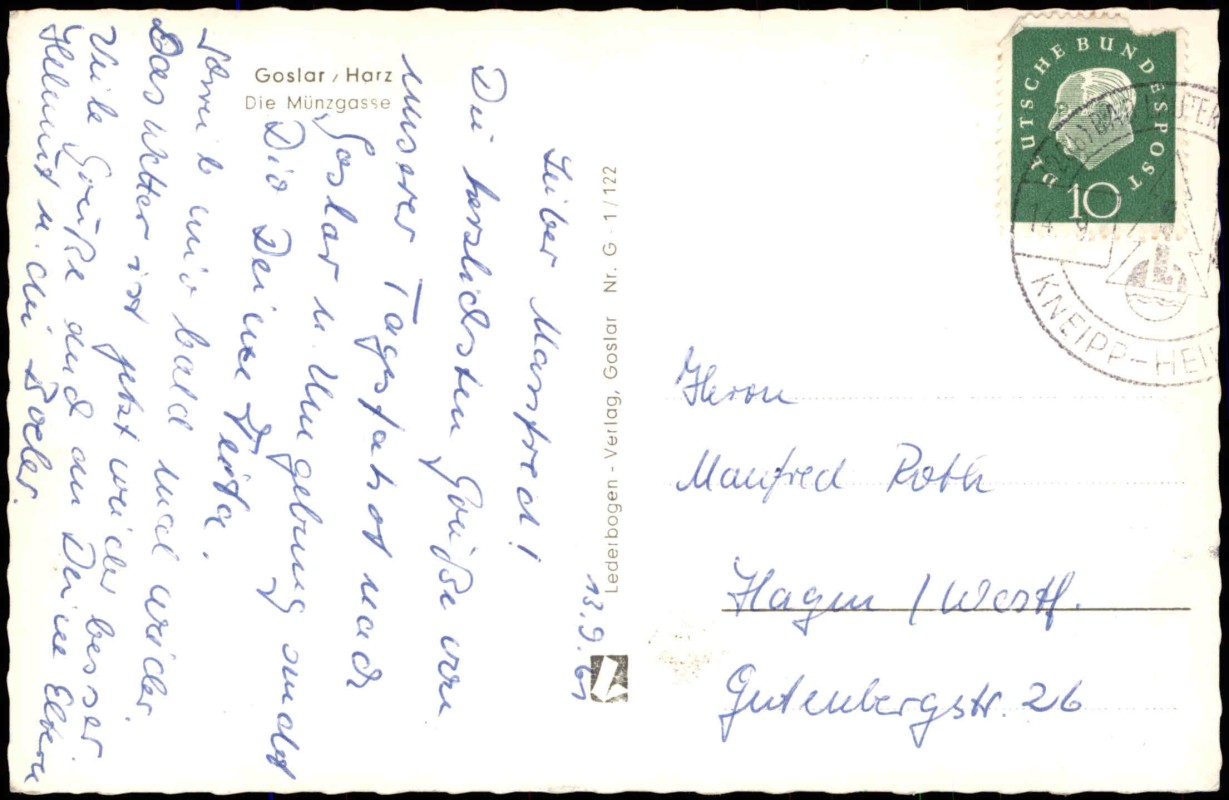 Goslar / Harz
Die Münzgasse
13.9.61
Lieber Manfred!
Die herzlichsten Grüße von
unserer Tagesfahrt nach
Goslar u. Umgebung sendet
Dir Deine
Schreib mir bald mal wieder.
Das Wetter ist jetzt wieder besser.
Viele Grüße auch an Deine Eltern
Helmut u. die
Lederbogen - Verlag, Goslar Nr. G - 1/122
DEUTSCHE BUNDESPOST
10
KNEIPP-HEIL
Herrn
Manfred Roth
Hagen / Westf.
Gutenbergstr. 26